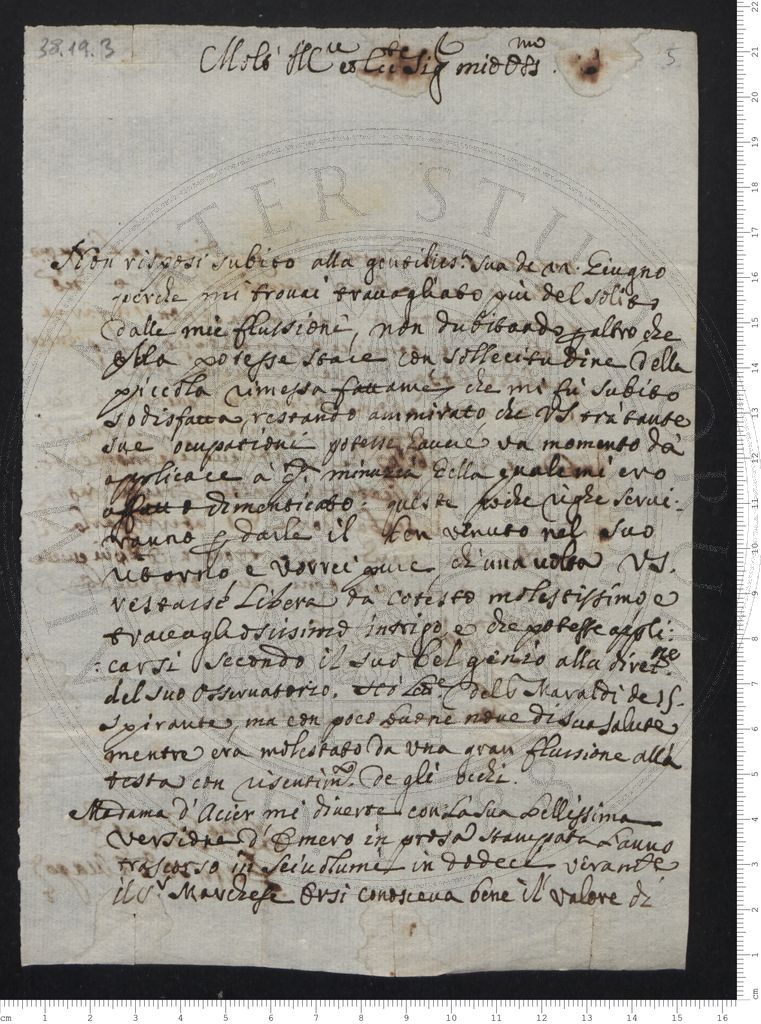 38.19.3
5
Molt' Ill.re Sig.r mio Oss.mo
Non risposi subito alla gentiliss.a sua de 11. Giugno
perche mi trovai travagliato più del solito
dalle mie flussioni, non dubitando p altro che
ella potesse stare con sollecitudine della
piccola rimessa fattame che mi fù subito
sodisfatta, restando ammirato che VS. trà tante
sue ocupationi potesse havere un momento da
applicare à q.a minuzia della quale mi ero
affatto dimenticato: queste poche righe servi:
ranno p darle il ben venuto nel suo
ritorno, e vorrei pure ch'una volta VS.
restasse libera da cotesto molestissimo e
travagliosissimo intrigo, e che potesse appli:
:carsi secondo il suo bel genio alla direz.ne
del suo Osservatorio. del S. Maraldi de 15.
spirante, ma con poco buone nove di sua salute
mentre era molestato da una gran flussione alla
testa con risentim.o de gli occhi.
Madama d'Acier mi diverte con la sua bellissima
versione d'Omero in prosa stampata l'anno
trascorso in sei volumi in dodeci
il S.r Marchese Orsi conosceva bene il valore di